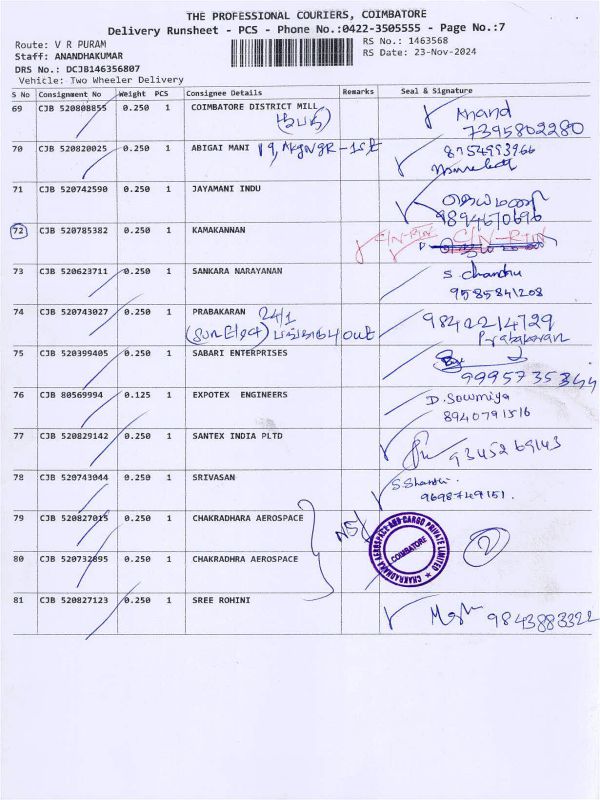 THE PROFESSIONAL COURIERS, COIMBATORE
Delivery Runsheet - PCS - Phone No.:0422-3505555 - Page No.:7
Route: V R PURAM
RS No.: 1463568
Staff: ANANDHAKUMAR
RS Date: 23-Nov-2024
DRS No.: DCJB146356807
Vehicle: Two Wheeler Delivery
S No Consignment No Weight PCS Consignee Details Remarks Seal & Signature
69 CJB 520808855 0.250 1 COIMBATORE DISTRICT MILL Anand
7395802280
70 CJB 520820025 0.250 1 ABIGAI MANI 8754993966
71 CJB 520742590 0.250 1 JAYAMANI INDU ஜெயமணி
9894670696
72 CJB 520785382 0.250 1 KAMAKANNAN C/N-RTN C/N-RTN
73 CJB 520623711 0.250 1 SANKARA NARAYANAN S. Chandru
9585841208
74 CJB 520743027 0.250 1 PRABAKARAN 24/1 9842214729
Prabakaran
75 CJB 520399405 0.250 1 SABARI ENTERPRISES
9995735344
76 CJB 80569994 0.125 1 EXPOTEX ENGINEERS D. Sowmiya
8940791516
77 CJB 520829142 0.250 1 SANTEX INDIA PLTD 9345269143
78 CJB 520743044 0.250 1 SRIVASAN S. Shanthi
9698749151.
79 CJB 520827015 0.250 1 CHAKRADHARA AEROSPACE
CHAKRADHARA AEROSPACE AND CARGO PRIVATE LIMITED
COIMBATORE
2
80 CJB 520732895 0.250 1 CHAKRADHRA AEROSPACE
81 CJB 520827123 0.250 1 SREE ROHINI 9843883322